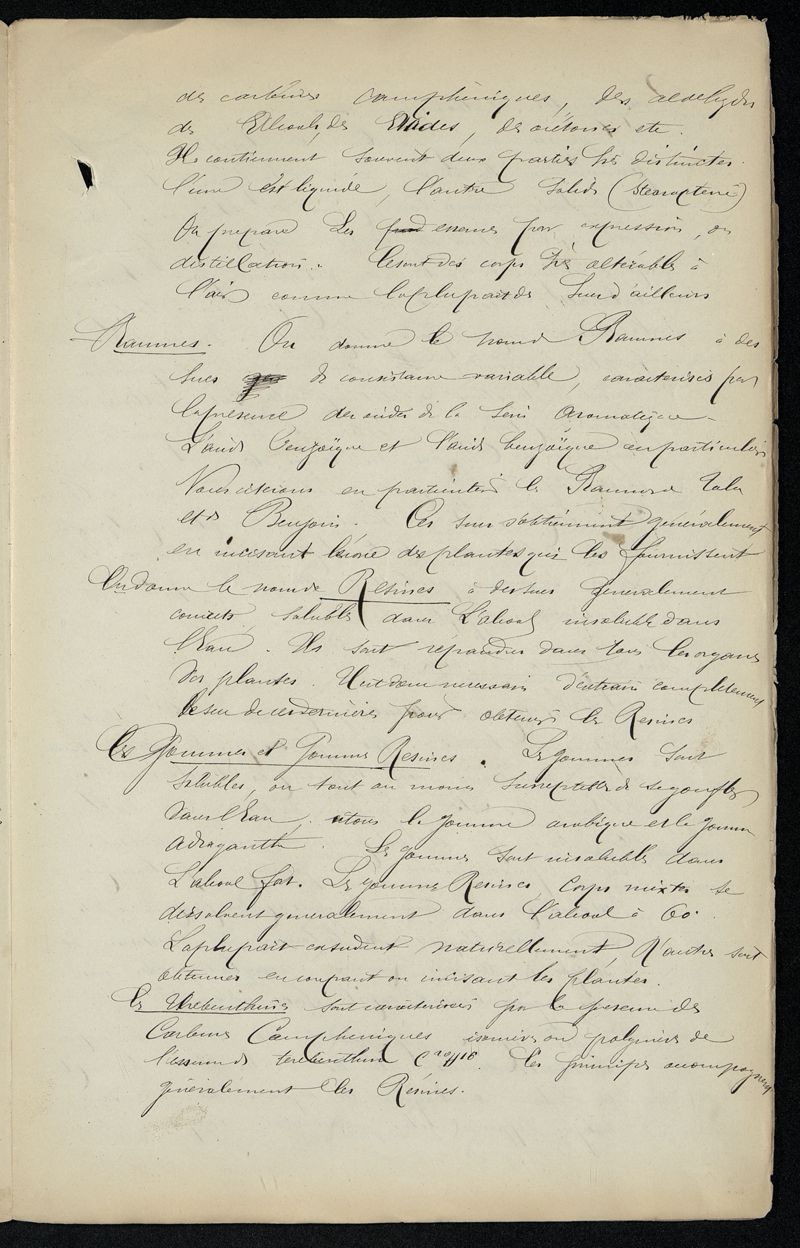 des carbures camphéniques, des aldehydes
des Alcools, des Acides, des acétones etc.
Ils contiennent souvent deux parties très distinctes.
l'une est liquide, l'autre solide (Stearoptene)
On prepare les essences par expression, ou
distillation. Ce sont des corps très altérables à
l'air comme la plupart des sucs d'ailleurs
Baumes. On donne le nom de Baumes à des
sucs de consistance variable, caracterisés par
la présence des acides de la serie aromatique.
L'acide benzoïque et l'acide benzoïque en particulier
Nous citerons en particulier le Baume de Tolu
et de Benjoin. Ces sucs s'obtiennent généralement
en incisant l'écorce des plantes qui les fournissent
On donne le nom de Résines à des sucs generalement
concrets, solubles dans l'alcool insoluble dans
l'Eau. Ils sont répandus dans tous les organes
des plantes. Il est donc necessaire d'extraire completement
le suc de ces dernières pour obtenir les Resines
Les Gommes et Gommes Resines. Les gommes sont
solubles, ou tout au moins susceptibles de se gonfler
dans l'Eau, citons la gomme arabique et la gomme
adragante. Les gommes sont insolubles dans
l'alcool fort. Les gommes Resines, corps mixtes se
dissolvent generalement dans l'alcool à 60.
La plupart exsudent naturellement, D'autres sont
obtenues en coupant ou incisant les plantes.
Les Therebenthines sont caractérisées par la presence des
Carbures Campheniques isomères ou polymères de
l'essence de terebenthine C²⁰H¹⁶. Ces principes accompagnent
généralement les Résines.